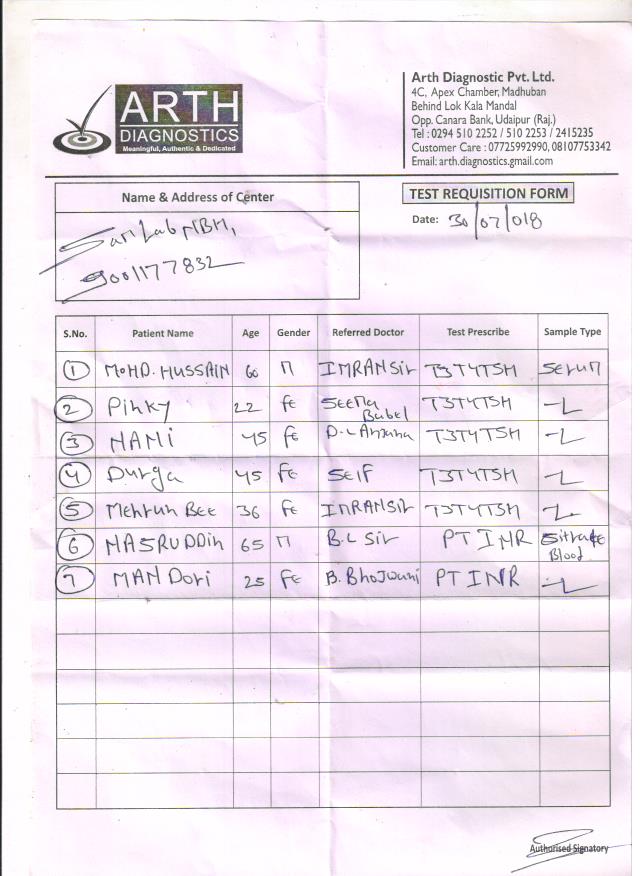 ARTH
DIAGNOSTICS
Meaningful, Authentic & Dedicated
Arth Diagnostic Pvt. Ltd.
4C, Apex Chamber, Madhuban
Behind Lok Kala Mandal
Opp. Canara Bank, Udaipur (Raj.)
Tel : 0294 510 2252 / 510 2253 / 2415235
Customer Care : 07725992990, 08107753342
Email: arth.diagnostics.gmail.com
Name & Address of Center
TEST REQUISITION FORM
Date: 30/07/018
Lab NBH,
9001177832
S.No. Patient Name Age Gender Referred Doctor Test Prescribe Sample Type
1 MOHD. HUSSAIN 60 M IMRAN Sir T3T4TSH Serum
2 Pinky 22 Fe Seema Babel T3T4TSH
3 NAMi 45 Fe D.L T3T4TSH
4 Durga 45 Fe Self T3T4TSH
5 Mehrun Bee 36 Fe IMRAN Sir T3T4TSH
6 NASRUDDin 65 M B.L Sir PT INR Sitrate Blood
7 MAN Dori 25 Fe B. Bhojwani PT INR
Authorised Signatory